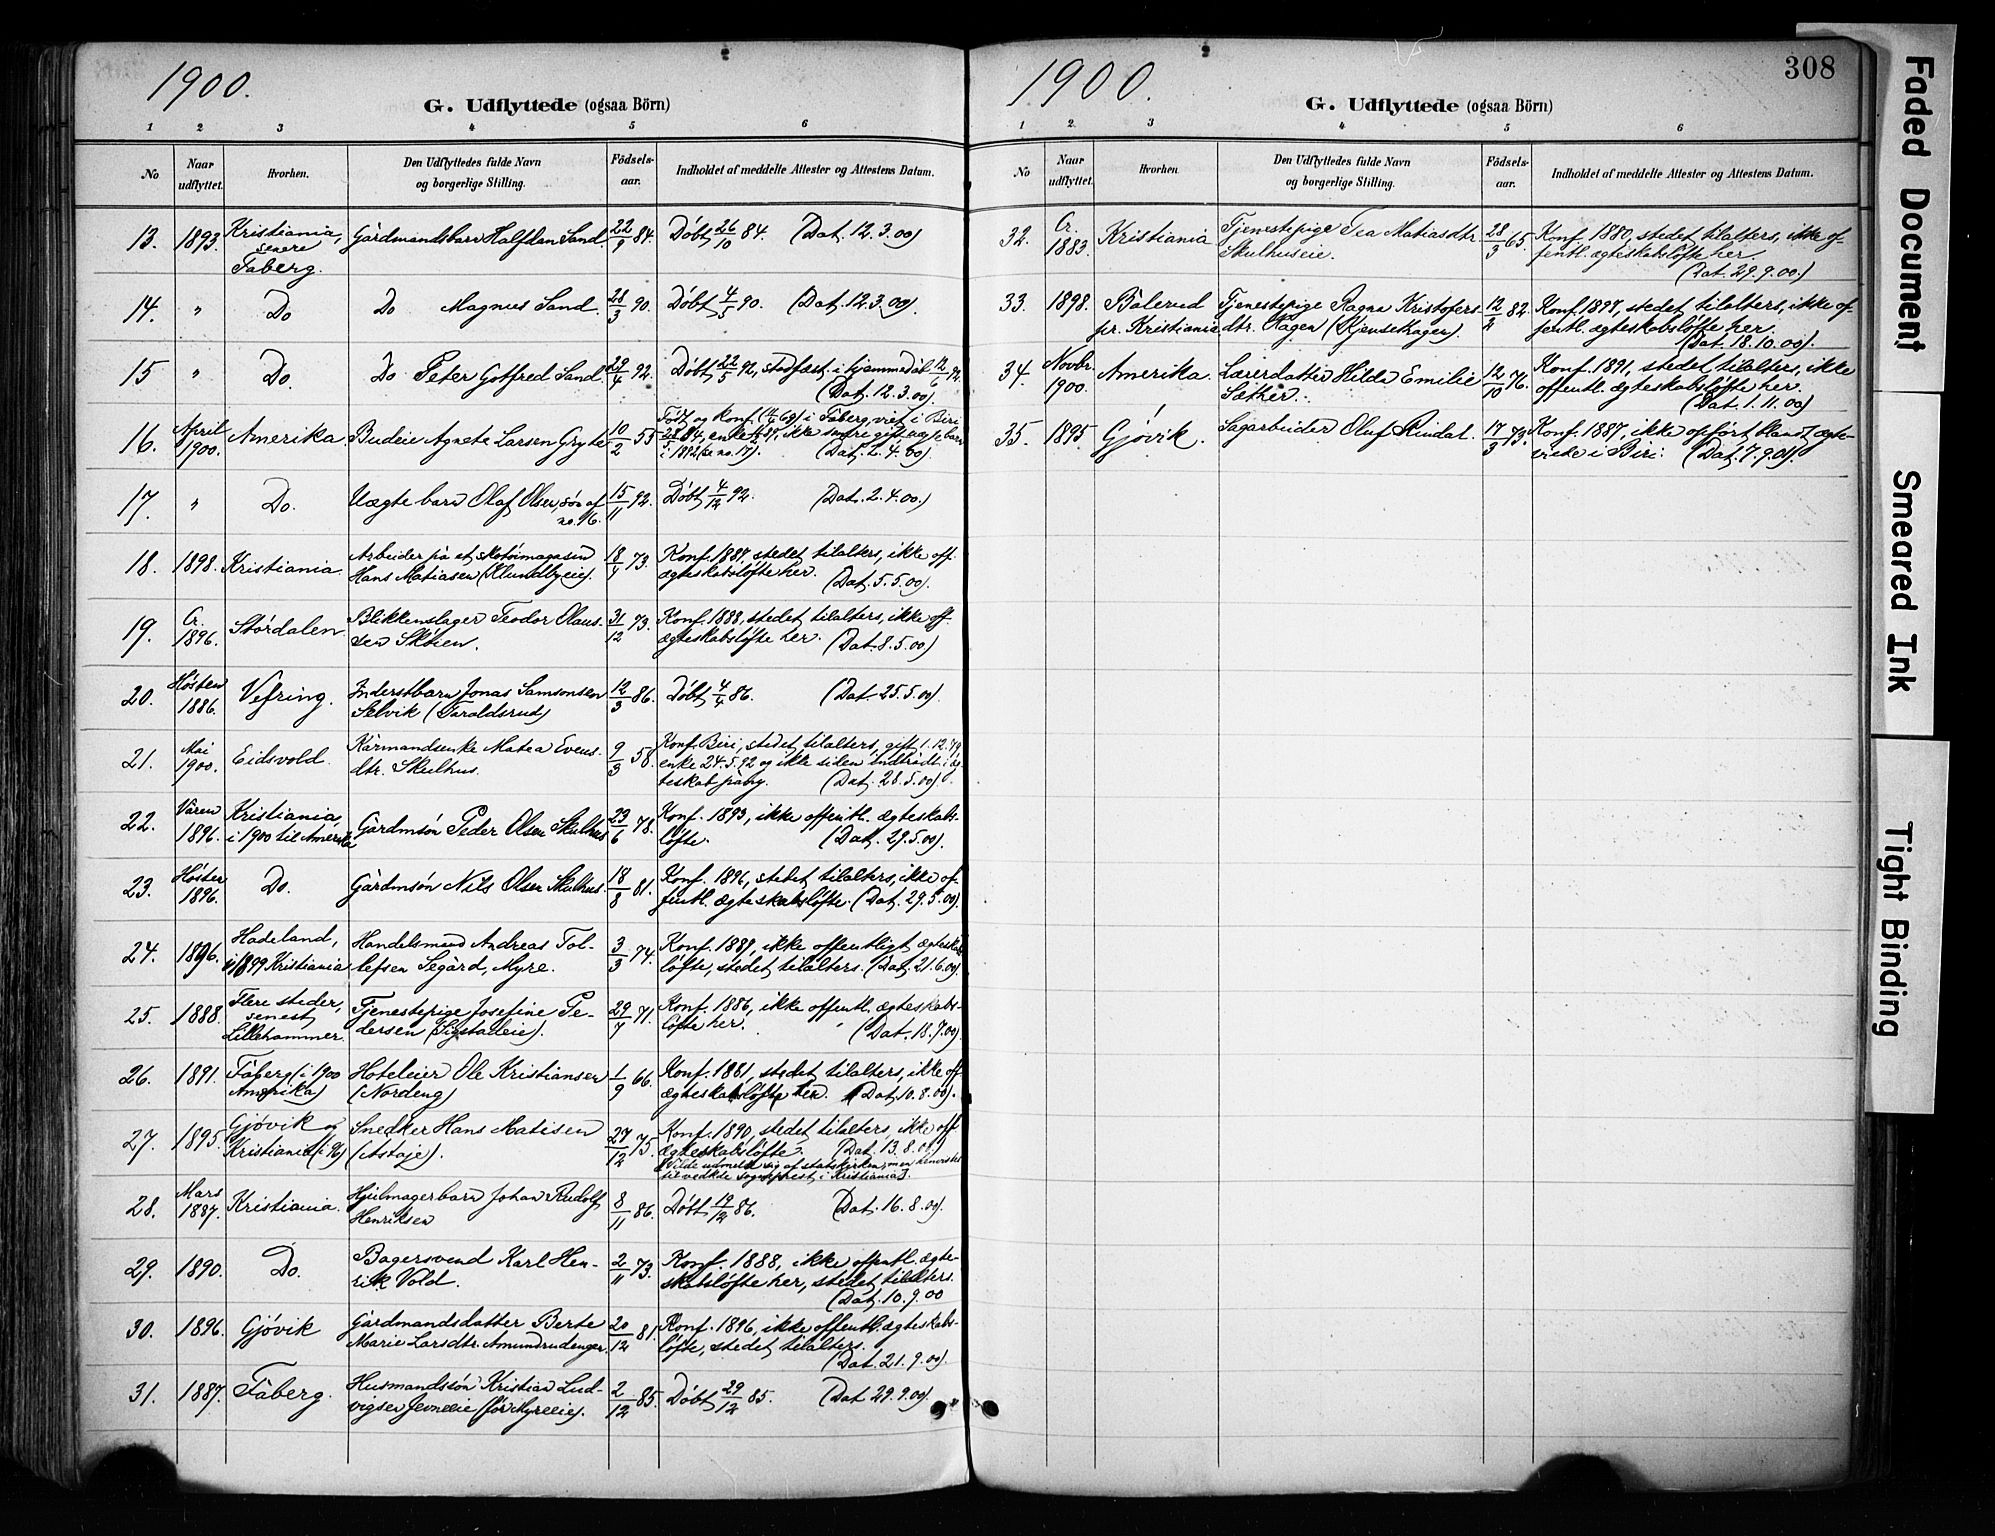 1900.
G. Udflyttede (ogsaa Börn)
1 2 3 4 5 6
No
Naar udflyttet.
Hvorhen.
Den Udflyttedes fulde Navn og borgerlige Stilling.
Födsels-aar.
Indholdet af meddelte Attester og Attestens Datum.
13. 1893. Kristiania, senere Fåberg. Gårdmandsbarn Halfdan Sand 22/9 84. Døbt 26/10 84. (Dat. 12.3.00)
14. " Do Do Magnus Sand. 28/3 90. Døbt 4/5 90. (Dat. 12.3.00).
15 " Do. Do Peter Gotfred Sand. 29/4 92. Døbt 22/5 92, stadfæst. i hjemmedåb 12/6 92.
(Dat. 12.3.00).
16. April 1900. Amerika. Budeie Agnete Larsen Gryte 10/2 55
Født og konf. i Fåberg, viet i Biri
84, enke, ikke gift
i 1892 (se no. 17). (Dat. 2.4.00)
17. " Do. Uægte barn Olaf Olsen, søn af no. 16. 15/11 92. Døbt 4/12 92. (Dat. 2.4.00.)
18. 1898. Kristiania. Arbeider på et skotøimagasin
Hans Matiasen (Klundbyeie). 18/7 73. Konf. 1887, stedet tilalters, ikke off.
ægteskabsløfte her. (Dat. 5.5.00).
19. Cr. 1896. Stördalen Blikkenslager Teodor Olaus-
sen Skøien. 31/12 73. Konf. 1888, stedet tilalters, ikke off.
ægteskabsløfte her. (Dat. 8.5.00)
20. Høsten 1886. Vefring. Inderstbarn Jonas Samsonsen
Selvik (Taraldsrud) 12/3 86. Døbt 4/4 86. (Dat. 25.5.00).
21. Mai 1900. Eidsvold. Kårmandsenke Matea Evens-
dtr. Skulhus. 9/3 58. Konf. Biri, stedet tilalters, gift 1.12.79,
enke 24.5.92 og ikke siden indtrådt i æg-
teskab påny. (Dat. 28.5.00).
22. Våren 1896. Kristiania, i 1900 til Amerika Gårdmsøn Peder Olsen Skulhus 23/6 78. Konf. 1893, ikke offentl. ægteskabs-
løfte. (Dat. 29.5.00).
23. Høsten 1896. Do. Gårdmsøn Nils Olsen Skulhus. 18/8 81. Konf. 1896, stedet tilalters, ikke of-
fentl. ægteskabsløfte. (Dat. 29.5.00).
24. 1896. Hadeland, i 1899 Kristiania Handelsmand Andreas Tol-
lefsen Segård, Myre. 3/3 74. Konf. 1889, ikke offentligt ægteskabs
løfte, stedet tilalters. (Dat. 21.6.00).
25. 1888. Flere steder, senest Lillehammer. Tjenestepige Josefine Pe-
dersen (Sigstadeie). 29/7 71. Konf. 1886, ikke offentl. ægteskabs-
løfte her. (Dat. 18.7.00)
26. 1891. Fåberg (i 1900 Amerika) Hoteleier Ole Kristiansen
(Nordeng) 1/9 66. Konf. 1881, stedet tilalters, ikke off
ægteskabsløfte her. (Dat. 10.8.00).
27. 1895. Gjøvik og Kristiania Snedker Hans Matisen
(Astøje). 27/12 75. Konf. 1890, stedet tilalters, ikke off
ægteskabsløfte. (Dat. 13.8.00)
(Vilde udmeldt sig af statskirken, men henvistes
til vedkde sogneprest i Kristiania).
28. Mars 1887. Kristiania. Hjulmagerbarn Johan Rudolf
Henriksen 8/11 86. Døbt 19/12 86. (Dat. 16.8.00).
29. 1890. Do. Bagersvend Karl Hen-
rik Vold. 2/11 73. Konf. 1888, ikke offentl. ægte-
skabsløfte her, stedet tilalters.
(Dat. 10.9.00
30. 1896. Gjøvik Gårdmandsdatter Berte
Marie Larsdtr. Amundrudenger. 20/12 81. Konf. 1896, ikke offentl. ægteskabs-
løfte, stedet tilalters.
(Dat. 21.9.00).
31. 1887. Fåberg. Husmandssøn Kristian Lud-
vigsen Jevneeie (før Myreeie). 2/12 85. Døbt 29/12 85. (Dat. 29.9.00).
1900.
308
G. Udflyttede (ogsaa Börn)
1 2 3 4 5 6
No
Naar udflyttet.
Hvorhen.
Den Udflyttedes fulde Navn og borgerlige Stilling.
Födsels-aar.
Indholdet af meddelte Attester og Attestens Datum.
32. Cr. 1883. Kristiania Tjenestepige Tea Matiasdtr
Skulhuseie. 28/3 65. Konf. 1880, stedet tilalters, ikke of-
fentl. ægteskabsløfte her.
(Dat. 29.9.00.)
33. 1898. Bålerud pr. Kristiania Tjenestepige Ragna Kristofers-
dtr. Hagen (Kjendehagen). 12/2 82. Konf. 1897, stedet tilalters, ikke of-
fentl. ægteskabsløfte her.
(Dat. 18.10.00).
34. Novbr. 1900. Amerika. Lærerdatter Hilda Emilie
Sæther. 12/10 76. Konf. 1891, stedet tilalters, ikke
offentl. ægteskabsløfte her.
(Dat. 1.11.00)
35. 1895. Gjøvik. Sagarbeider Oluf Rindal. 17/3 73. Konf. 1887, ikke opført blandt ægte-
viede i Biri. (Dat. 7.9.01).
Faded Document
Smeared Ink
Tight Binding